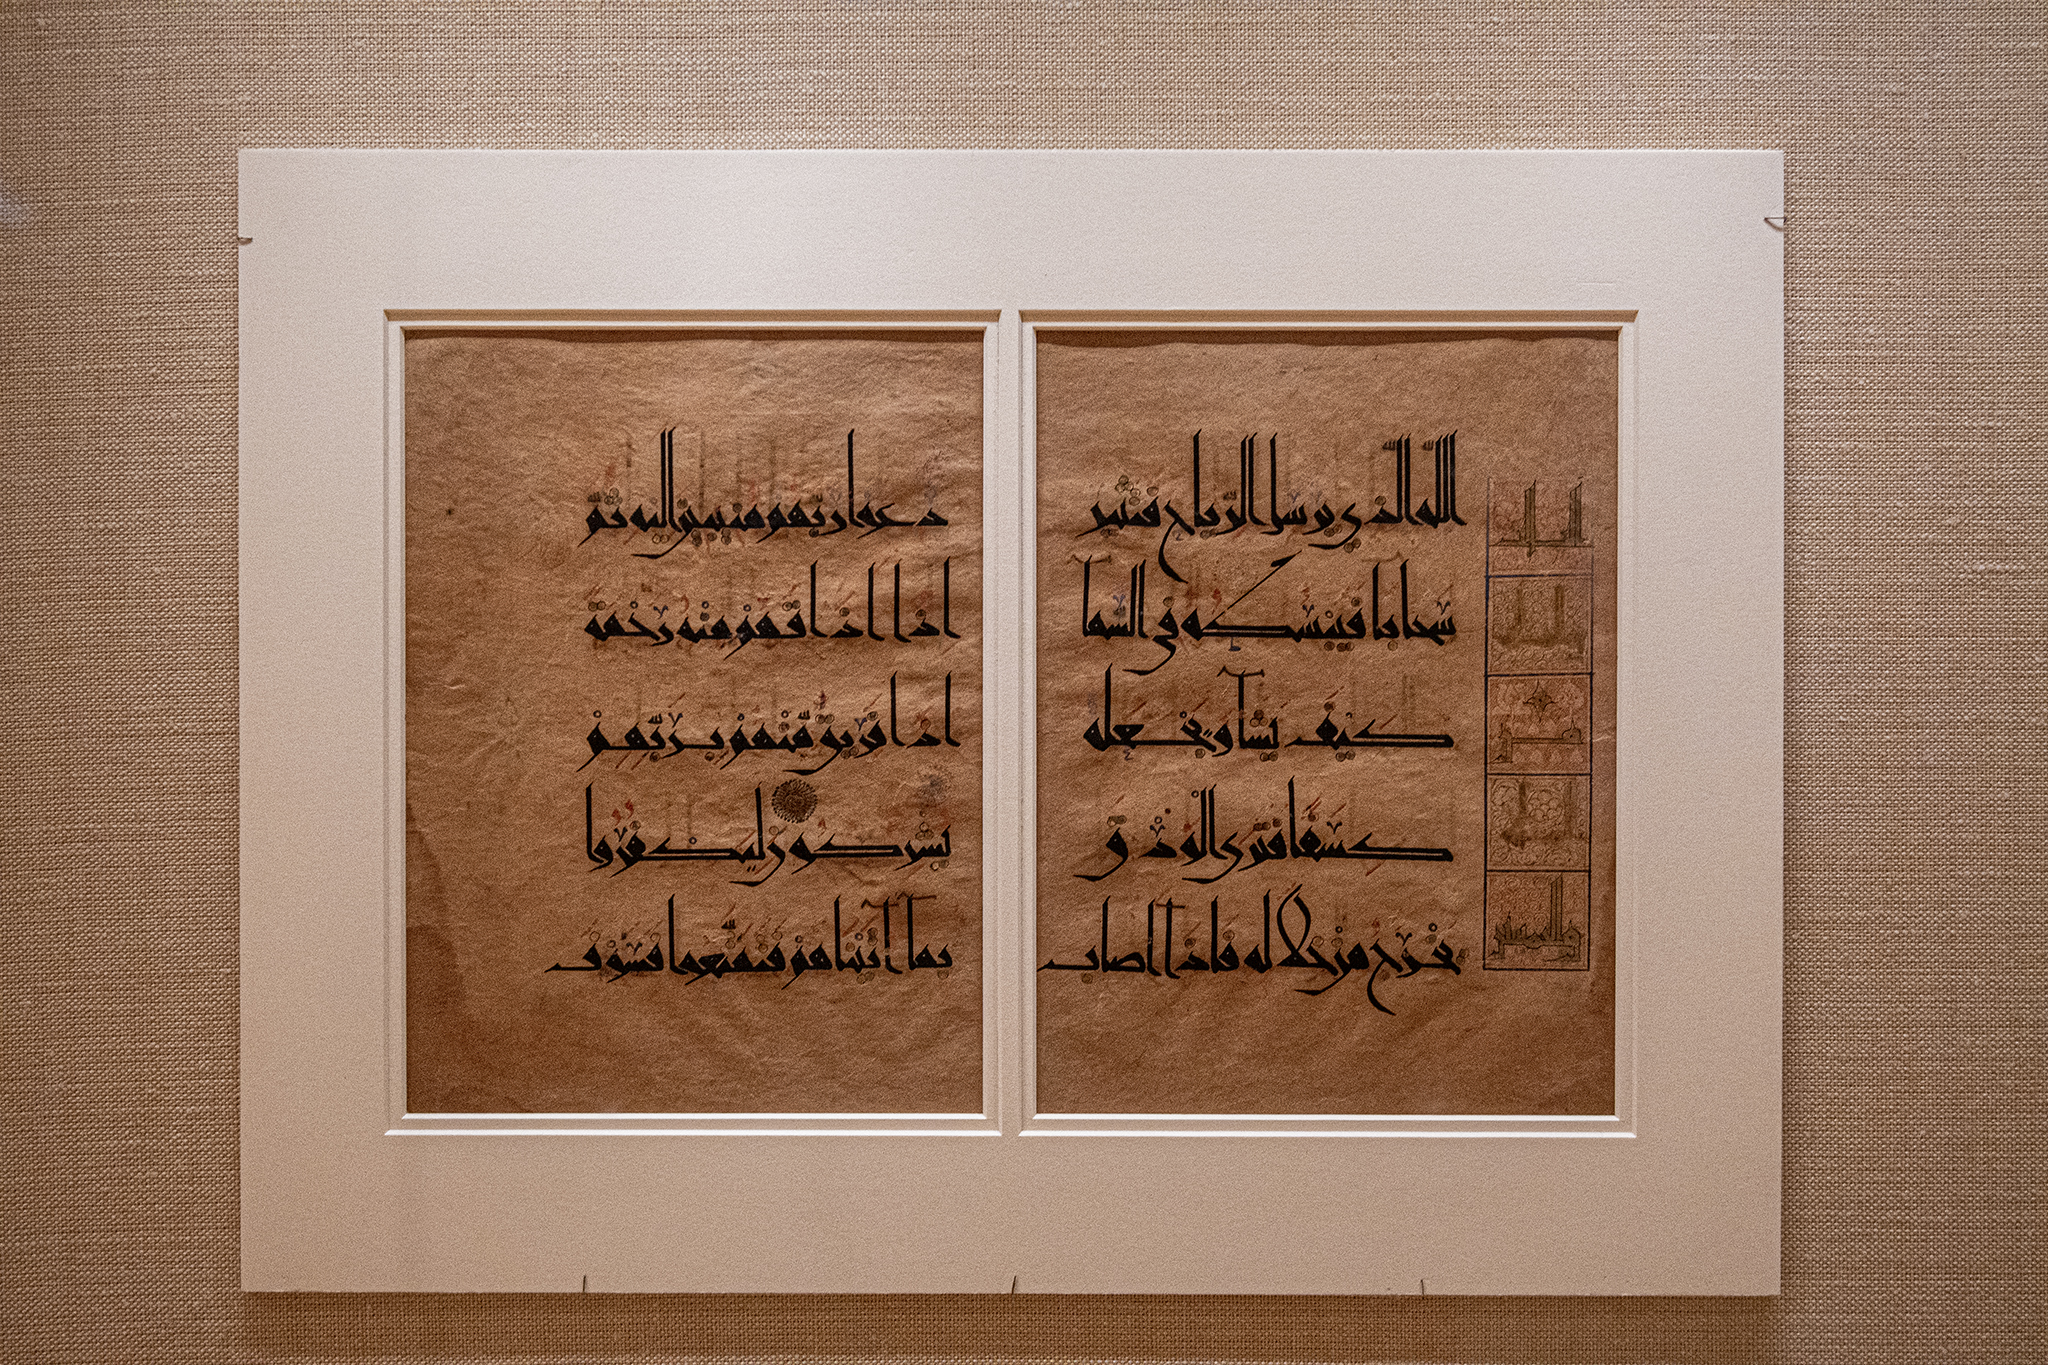 اللّه الّذي يرسل الرّياح فتثير
سحابا فيبسطه في السّمآ
كيف يشآ ويجعله
كسفا فترى الودق
يخرج من خلاله فاذا اصاب
دعوا ربّهم منيبين اليه ثمّ
اذا اذاقهم منه رحمة
اذا فريق مّنهم بربّهم
يشركون ليكفروا
بمآ آتيناهم فتمتّعوا فسوف